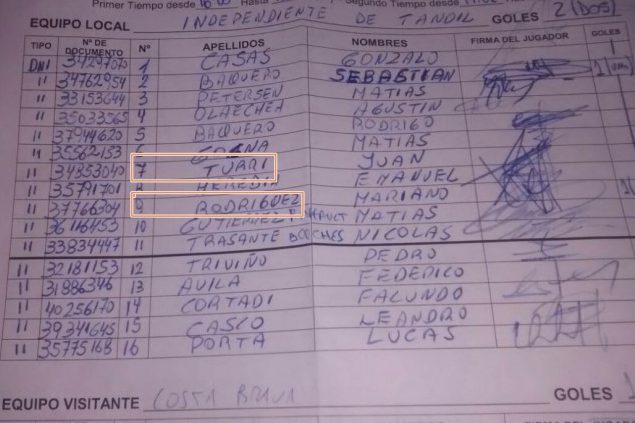 Primer Tiempo desde 16:00 Hasta Segundo Tiempo desde
EQUIPO LOCAL INDEPENDIENTE DE TANDIL GOLES 2 (DOS)
TIPO Nº DE DOCUMENTO Nº APELLIDOS NOMBRES FIRMA DEL JUGADOR GOLES
DNI 34297070 1 CASAS GONZALO 1
11 34762954 2 BAQUERO SEBASTIAN 1
11 33153644 3 PETERSEN MATIAS
11 35033565 4 OLAECHEA AGUSTIN
11 37944620 5 BAQUERO RODRIGO
11 35562153 6 MATIAS
11 34853040 7 TURRI JUAN
11 35791701 8 HEREDIA EMANUEL
11 37766304 9 RODRIGUEZ MARIANO
11 36116453 10 GUTIERREZ MATIAS
11 33834447 11 TRASANTE NICOLAS
11 32181153 12 TRIVIÑO PEDRO
11 31886346 13 AVILA FEDERICO
11 40256170 14 CORTADI FACUNDO
11 39341645 15 CASCO LEANDRO
11 35775168 16 PORTA LUCAS
EQUIPO VISITANTE COSTA BRAVA GOLES 1